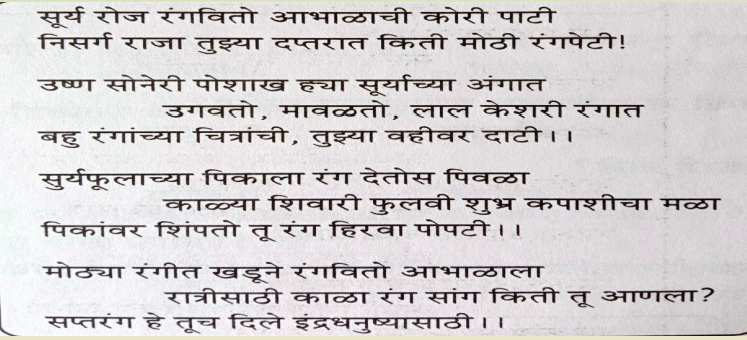 सूर्य रोज रंगवितो आभाळाची कोरी पाटी
निसर्ग राजा तुझ्या दप्तरात किती मोठी रंगपेटी!
उष्ण सोनेरी पोशाख ह्या सूर्याच्या अंगात
उगवतो, मावळतो, लाल केशरी रंगात
बहु रंगांच्या चित्रांची, तुझ्या वहीवर दाटी।।
सुर्यफूलाच्या पिकाला रंग देतोस पिवळा
काळ्या शिवारी फुलवी शुभ्र कपाशीचा मळा
पिकांवर शिंपतो तू रंग हिरवा पोपटी।।
मोठ्या रंगीत खडूने रंगवितो आभाळाला
रात्रीसाठी काळा रंग सांग किती तू आणला?
सप्तरंग हे तूच दिले इंद्रधनुष्यासाठी।।